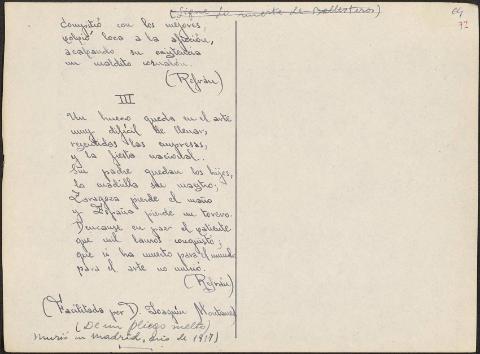 (Sigue la muerte de Ballesteros)
64
72
compitió con los mejores,
volvió loca a la afición,
acabando su existencia
un maldito
(Refrán)
III
Un hueco queda en el arte
muy difícil de llenar,
las empresas,
y la fiesta nacional..
Sin padre quedan los hijos,
la cuadrilla sin maestro;
Zaragoza pierde el maño
y España pierde un torero.
Descanse en paz el valiente
que mil lauros conquistó;
que si ha muerto para el mundo
para el arte no murió.
(Refrán)
(Facilitada por D. Joaquín
(De un pliego suelto)
Murió en Madrid, año de 1917)